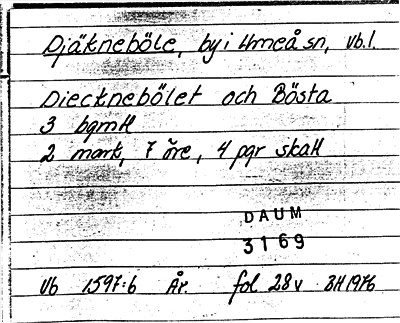 Djäkneböle, by i Umeå sn, Vb.l.
Diecknebölet och Bösta
3 bgmtl
2 mark, 7 öre, 4 pgr skatt
DAUM
3169
Vb 1597:6 År. fol 28v BH 1976